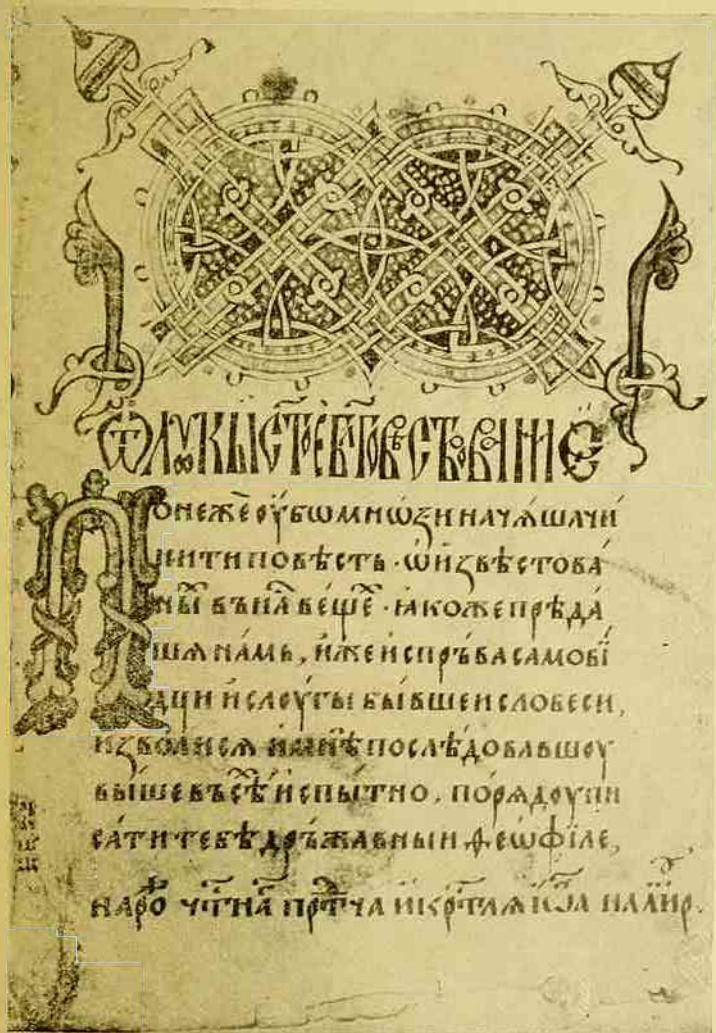 Ѿ лꙋкы ст҃ое бл҃говѣствованїе
Понеже оубѡ мнѡѕи начѧша чи
нити повѣсть · ѡ и҆звѣстова
ны́ⷯ въ на́ⷭ҇ ве́щеⷯ · ꙗ҆коже прѣда́
шѧ на́мь, и҆же и҆спръва самови́
дци и҆ слоугы бы́вше и҆ словеси,
и҆зволи сѧ и҆ мнѣ послѣдовавшоу
вы́ше въсѣⷯ и҆спы́тно, по рѧдоу пи
са́ти тебѣ дръжавныи ѳеѡфі́ле,